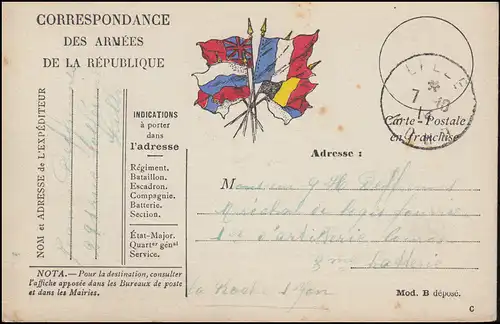 CORRESPONDANCE
DES ARMÉES
DE LA RÉPUBLIQUE
LILLE
7 10
14
NORD
Carte - Postale
en franchise
NOM et ADRESSE de L'EXPÉDITEUR
INDICATIONS
à porter
dans
l'adresse
Régiment.
Bataillon.
Escadron.
Compagnie.
Batterie.
Section.
État-Major.
Quartʳ génᵃˡ
Service.
Adresse :
Monsieur G. H.
Maréchal des logis fourrier
d'artillerie
batterie
La Roche s/Yon
NOTA. — Pour la destination, consulter
l'affiche apposée dans les Bureaux de poste
et dans les Mairies.
Mod. B déposé.
C